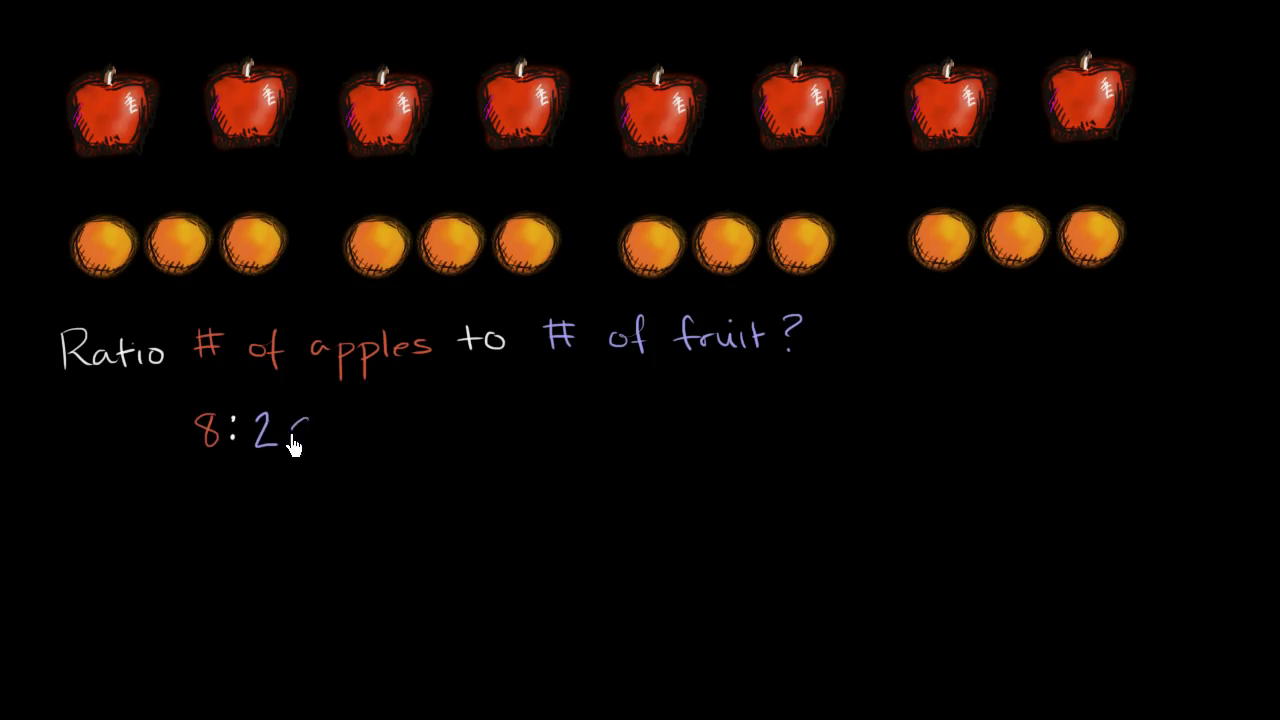 Ratio # of apples to # of fruit?
8:2